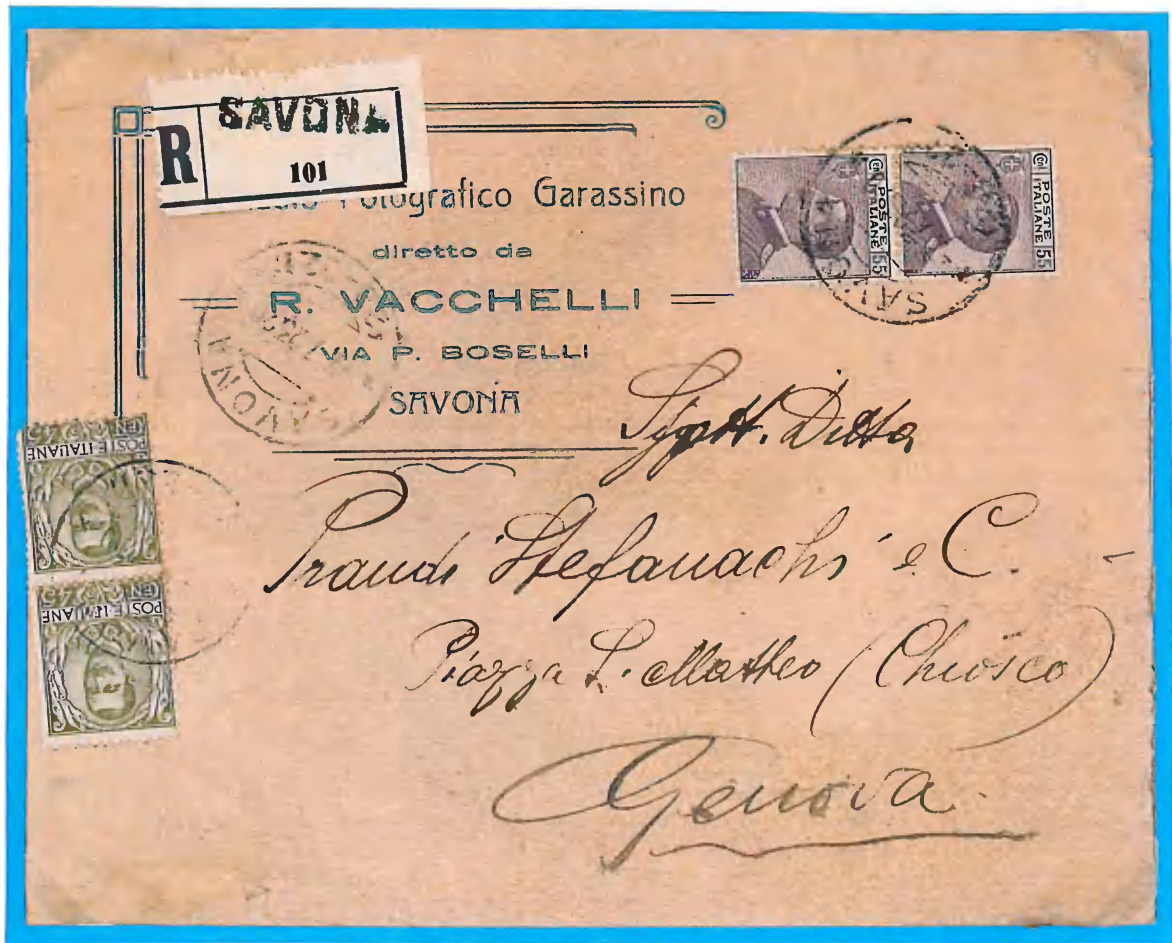 R SAVONA
101
Fotografico Garassino
diretto da
R. VACCHELLI
VIA P. BOSELLI
SAVONA
Cent POSTE ITALIANE 55
Cent POSTE ITALIANE 55
SAVONA
POSTE ITALIANE
CENT 45
POSTE ITALIANE
CENT 45
Spett. Ditta
Prandi Stefanachi e C.
Piazza S. Matteo (Chiosco)
Genova.